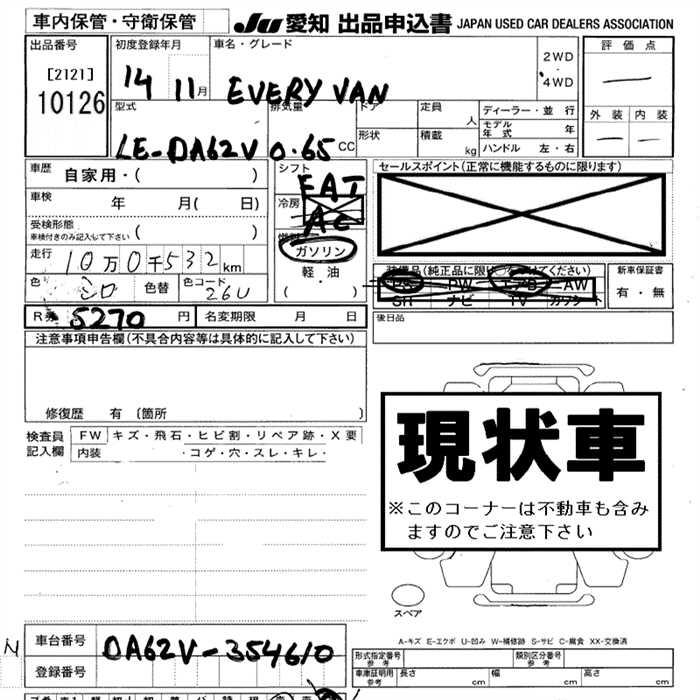 車内保管・守衛保管
JU 愛知 出品申込書 JAPAN USED CAR DEALERS ASSOCIATION
出品番号
[2121]
10126
初度登録年月
14 11月
車名・グレード
EVERY VAN
2WD
・
4WD
評価点
—
外装 内装
— —
型式
LE-DA62V
排気量
0.65 CC
ドア
形状
定員
人
積載
kg
ディーラー・並行
モデル年式 年
ハンドル 左・右
車歴 自家用・( )
車検 年 月( 日)
受検形態
車検付きのみ記入して下さい ( )
走行 10万0千532km
色 シロ 色替 色コード 26U
シフト
FAT
冷房
AC
燃料
ガソリン
軽・油
( )
セールスポイント(正常に機能するものに限ります)
装備品(純正品に限り○をつけてください)
PS PW エアB AW
SR ナビ TV カワシート
新車保証書
有・無
後日品
R券 5270 円 名変期限 月 日
注意事項申告欄(不具合内容等は具体的に記入して下さい)
修復歴 有 〔箇所 〕
検査員記入欄
FW キズ・飛石・ヒビ割・リペア跡・X要
内装 ・コゲ・穴・スレ・キレ・
現状車
※このコーナーは不動車も含み
ますのでご注意下さい
スペア
A-キズ E-エクボ U-凹み W-補修跡 S-サビ C-腐食 XX-交換済
車台番号 DA62V-354610
登録番号
形式指定番号
参考
類別区分番号
参考
車庫証明用
参考
長さ cm 幅 cm 高さ cm